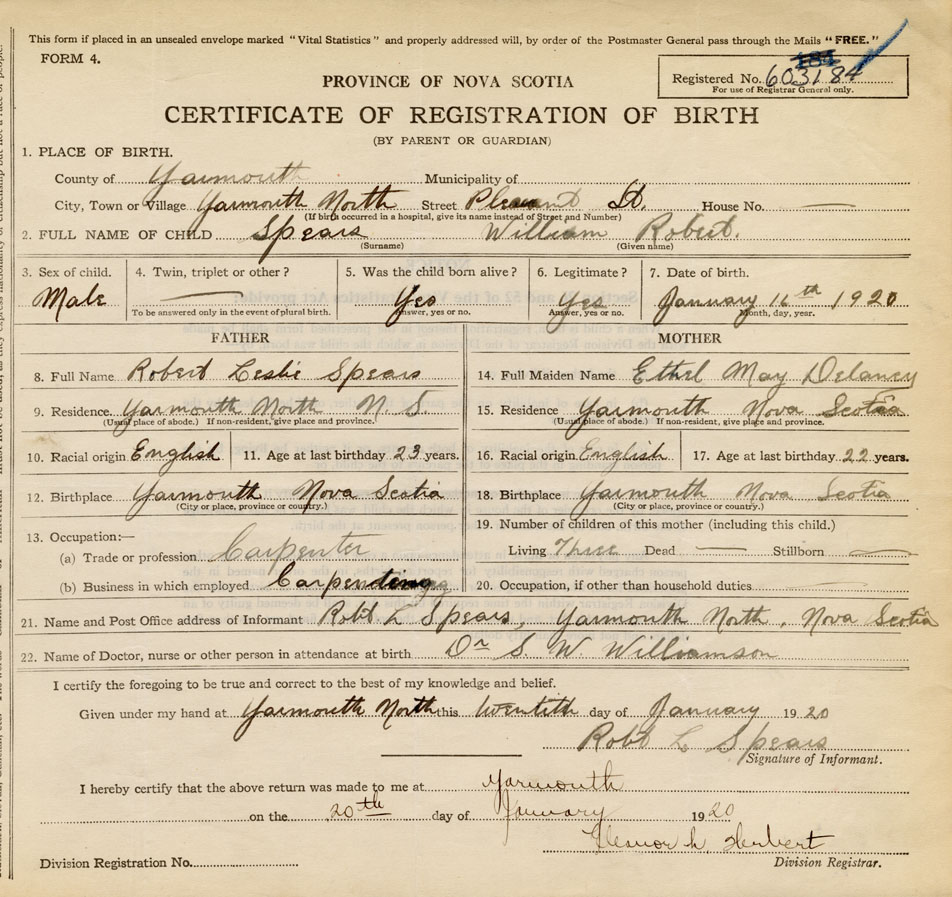 This form if placed in an unsealed envelope marked "Vital Statistics" and properly addressed will, by order of the Postmaster General pass through the Mails "FREE."
FORM 4.
184
PROVINCE OF NOVA SCOTIA
Registered No. 603184
For use of Registrar General only.
CERTIFICATE OF REGISTRATION OF BIRTH
(BY PARENT OR GUARDIAN)
1. PLACE OF BIRTH.
County of Yarmouth Municipality of
City, Town or Village Yarmouth North Street Pleasant St. House No. —
(If birth occurred in a hospital, give its name instead of Street and Number)
2. FULL NAME OF CHILD Spears William Robert.
(Surname) (Given name)
3. Sex of child. 4. Twin, triplet or other? 5. Was the child born alive? 6. Legitimate? 7. Date of birth.
Male — Yes Yes January 16th 1920
To be answered only in the event of plural birth. Answer, yes or no. Answer, yes or no. Month, day, year.
FATHER MOTHER
8. Full Name Robert Leslie Spears 14. Full Maiden Name Ethel May Delaney
9. Residence. Yarmouth North N. S 15. Residence Yarmouth Nova Scotia
(Usual place of abode.) If non-resident, give place and province. (Usual place of abode.) If non-resident, give place and province.
10. Racial origin English 11. Age at last birthday 23 years. 16. Racial origin English 17. Age at last birthday 22 years.
12. Birthplace Yarmouth Nova Scotia 18. Birthplace Yarmouth Nova Scotia
(City or place, province or country.) (City or place, province or country.)
13. Occupation:— 19. Number of children of this mother (including this child.)
(a) Trade or profession Carpenter Living Three Dead — Stillborn —
(b) Business in which employed Carpenting 20. Occupation, if other than household duties
21. Name and Post Office address of Informant Robt L Spears, Yarmouth North, Nova Scotia
22. Name of Doctor, nurse or other person in attendance at birth Dr S. W. Williamson
I certify the foregoing to be true and correct to the best of my knowledge and belief.
Given under my hand at Yarmouth North this twentieth day of January 1920
Robt L Spears
Signature of Informant.
I hereby certify that the above return was made to me at Yarmouth
on the 20th day of January 1920
Eleanor L. Herbert
Division Registration No. Division Registrar.